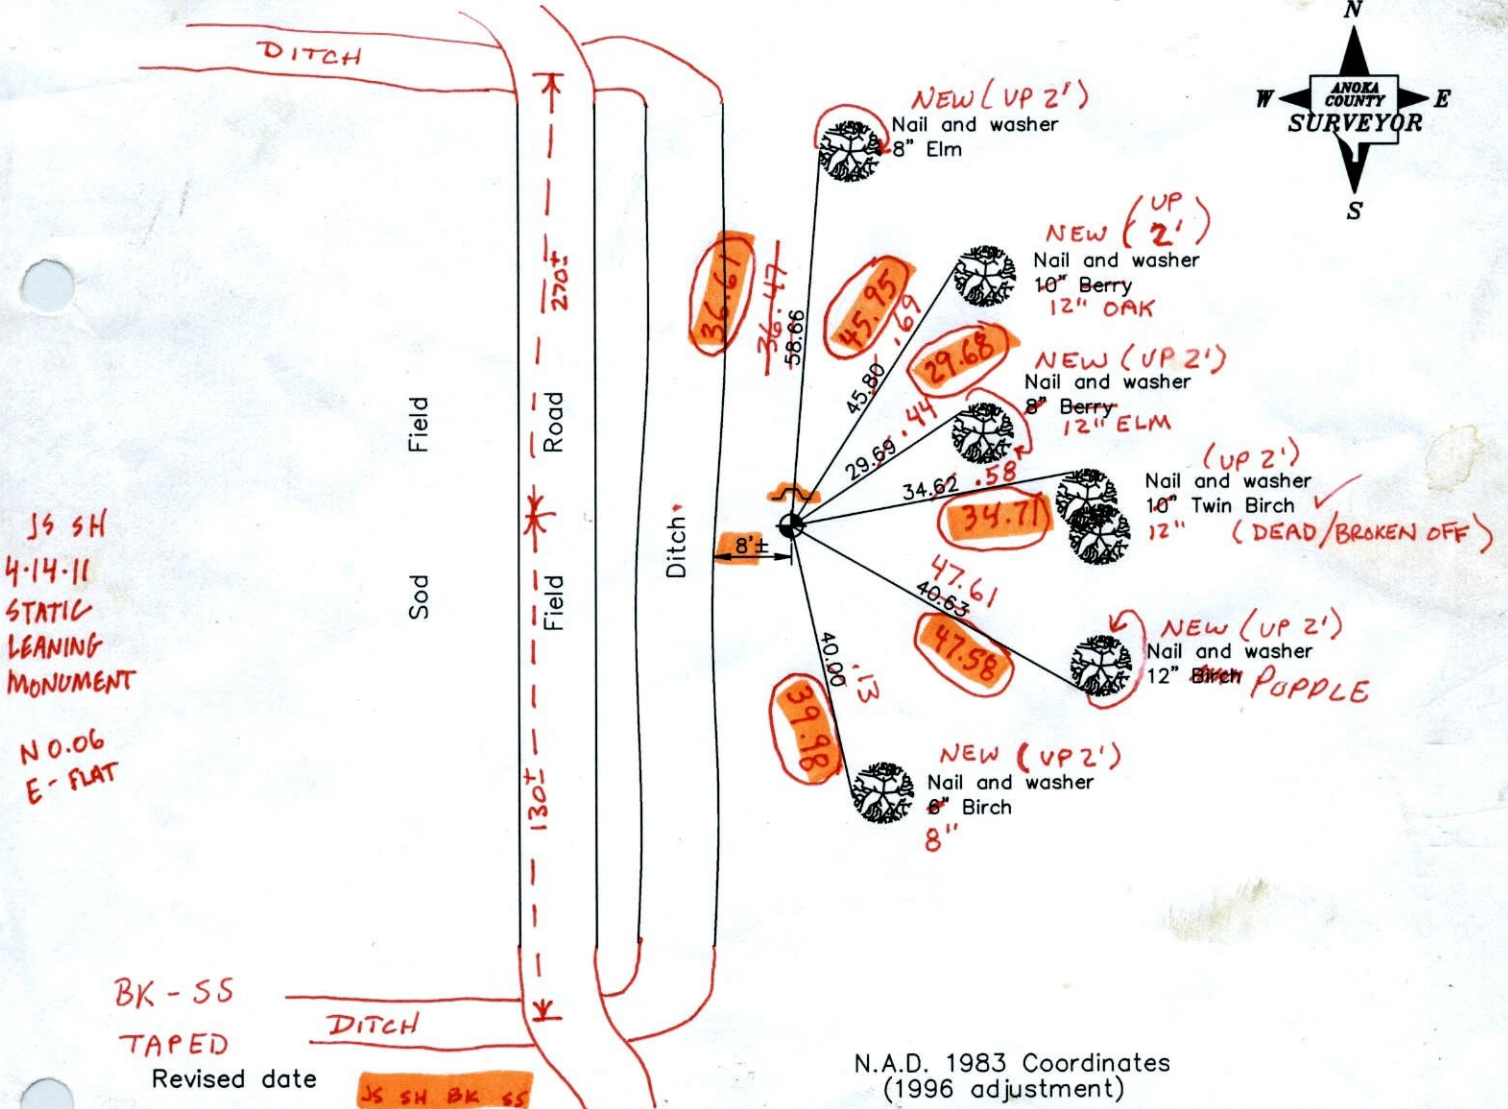 N
W E
ANOKA
COUNTY
SURVEYOR
S
DITCH
NEW (UP 2')
Nail and washer
8" Elm
NEW (UP 2')
Nail and washer
10" Berry
12" OAK
NEW (UP 2')
Nail and washer
8" Berry
12" ELM
(UP 2')
Nail and washer
10" Twin Birch
12" (DEAD/BROKEN OFF)
NEW (UP 2')
Nail and washer
12" Birch POPPLE
NEW (UP 2')
Nail and washer
6" Birch
8"
36.61
36.47
58.66
45.95
45.80 .69
29.68
29.69 .44
34.62 .58
34.71
47.61
40.63
47.58
40.00 .13
39.98
8'±
270±
130±
Sod Field
Field Road
Ditch
JS SH
4-14-11
STATIC
LEANING
MONUMENT
N 0.06
E - FLAT
BK - SS
TAPED
DITCH
Revised date
JS SH BK SS
N.A.D. 1983 Coordinates
(1996 adjustment)